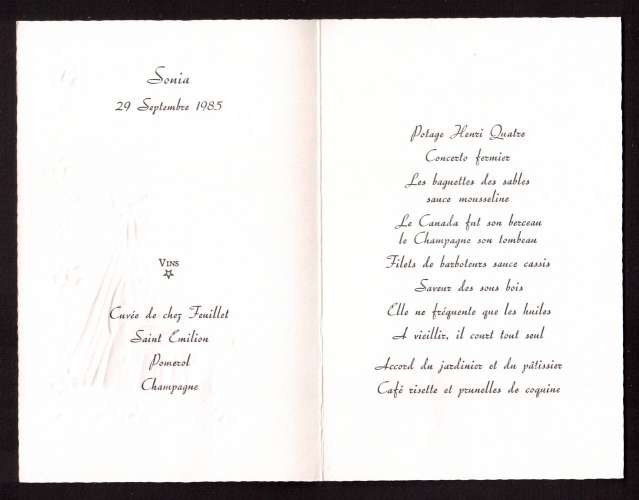 Sonia
29 Septembre 1985
VINS
Cuvée de chez Feuillet
Saint Emilion
Pomerol
Champagne
Potage Henri Quatre
Concerto fermier
Les baguettes des sables
sauce mousseline
Le Canada fut son berceau
le Champagne son tombeau
Filets de barboteurs sauce cassis
Saveur des sous bois
Elle ne fréquente que les huiles
A vieillir, il court tout seul
Accord du jardinier et du pâtissier
Café risette et prunelles de coquine